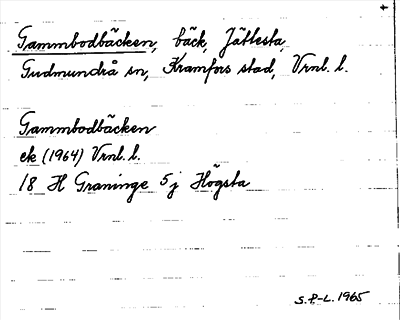 Gammbodbäcken, bäck, Jättesta,
Gudmundrå sn, Kramfors stad, Vrnl. l.
Gammbodbäcken
ek (1964) Vrnl. l.
18 H Graninge 5 j Högsta
S.P-L. 1965